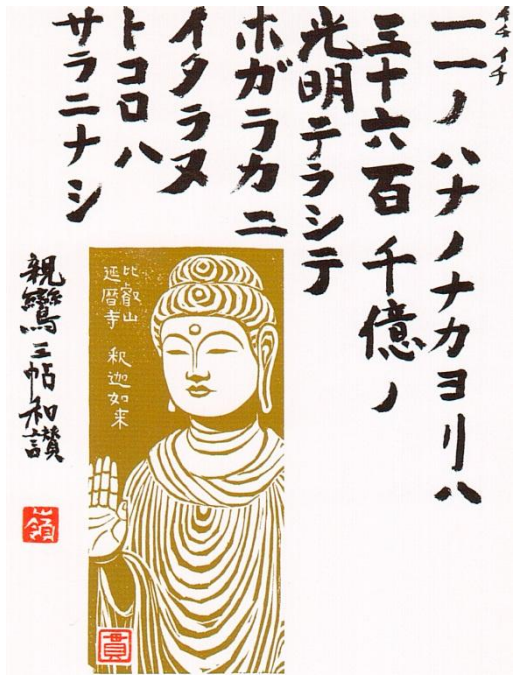 イチイチ
一一ノハナノナカヨリハ
三十六百千億ノ
光明テラシテ
ホガラカニ
イタラヌ
トコロハ
サラニナシ
親鸞三帖和讃
嶺
比叡山
延暦寺
釈迦如来
貫